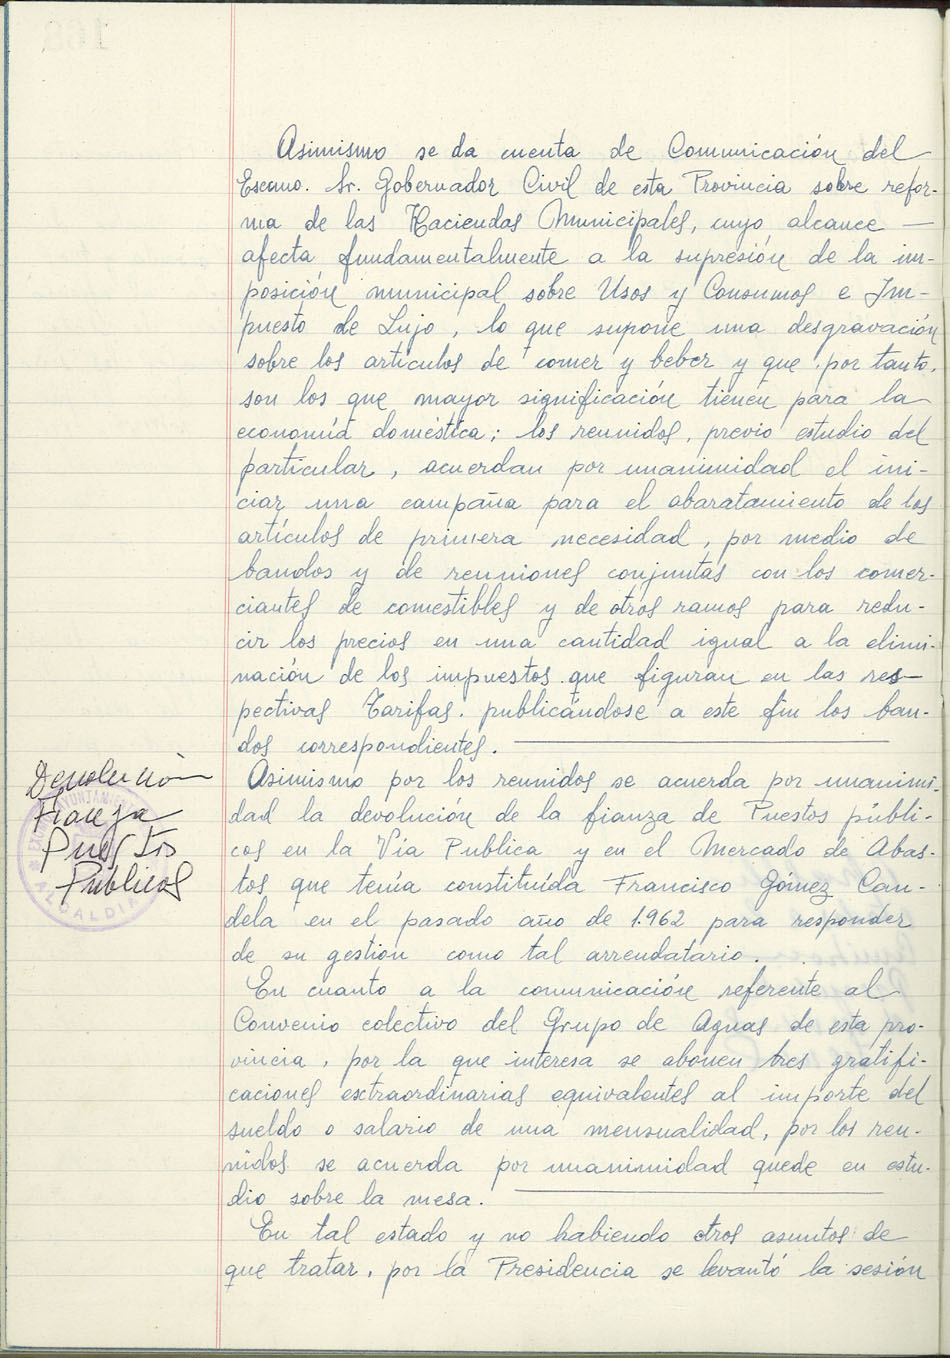 Asimismo se da cuenta de Comunicación del
Escmo. Sr. Gobernador Civil de esta Provincia sobre refor-
ma de las Haciendas Municipales, cuyo alcance —
afecta fundamentalmente a la supresión de la im-
posición municipal sobre Usos y Consumos e Im-
puesto de Lujo, lo que supone una desgravación
sobre los artículos de comer y beber y que, por tanto,
son los que mayor significación tienen para la
economía doméstica; los reunidos, previo estudio del
particular, acuerdan por unanimidad el ini-
ciar una campaña para el abaratamiento de los
artículos de primera necesidad, por medio de
bandos y de reuniones conjuntas con los comer-
ciantes de comestibles y de otros ramos para redu-
cir los precios en una cantidad igual a la elimi-
nación de los impuestos que figuran en las res-
pectivas Tarifas. publicándose a este fin los ban-
dos correspondientes.
Devolución
Fianza
Puestos
Públicos
AYUNTAMIENTO
ALCALDIA
Asimismo por los reunidos se acuerda por unanimi-
dad la devolución de la fianza de Puestos públi-
cos en la Vía Publica y en el Mercado de Abas-
tos que tenía constituída Francisco Gómez Can-
dela en el pasado año de 1.962 para responder
de su gestión como tal arrendatario.
En cuanto a la comunicación referente al
Convenio colectivo del Grupo de Aguas de esta pro-
vincia, por la que interesa se abonen tres gratifi-
caciones extraordinarias equivalentes al importe del
sueldo o salario de una mensualidad, por los reu-
nidos se acuerda por unanimidad quede en estu-
dio sobre la mesa.
En tal estado y no habiendo otros asuntos de
que tratar, por la Presidencia se levantó la sesión